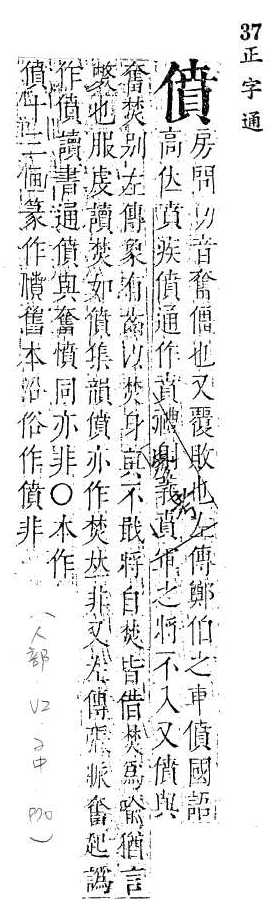 37正字通
僨
房問切音奮僵也又覆敗也左傳鄭伯之車僨國語
高位僨疾僨通作賁禮射義賁軍之將不入又僨與
奮焚别左傳象有齒以焚身與不戢將自焚皆借焚爲喻猶言
斃也服虔讀焚如僨集韻僨亦作焚㷊非又左傳張脈奮起譌
作僨讀書通僨與奮憤同亦非〇本作
僨十三畫篆作僨舊本沿俗作僨非
(人部